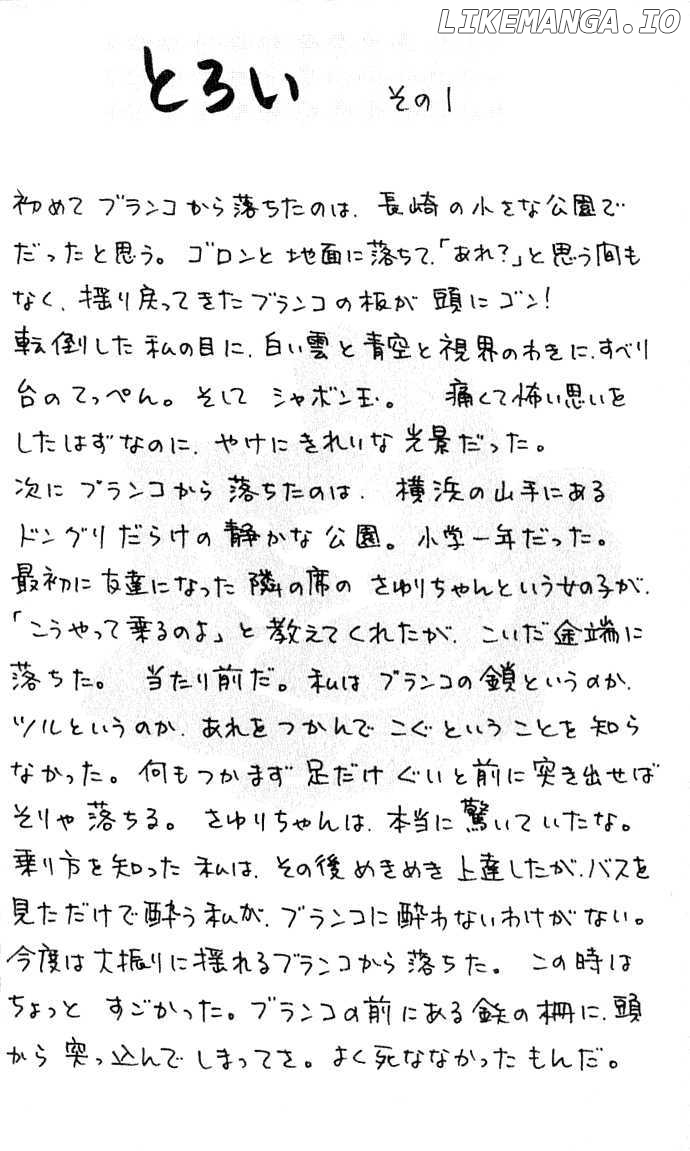 LIKEMANGA.IO
とろい その1
初めてブランコから落ちたのは、長崎の小さな公園で
だったと思う。ゴロンと地面に落ちて、「あれ?」と思う間も
なく、揺り戻ってきたブランコの板が頭にゴン!
転倒した私の目に、白い雲と青空と視界のわきに、すべり
台のてっぺん。そして シャボン玉。 痛くて怖い思いを
したはずなのに、やけにきれいな光景だった。
次にブランコから落ちたのは、横浜の山手にある
ドングリだらけの静かな公園。小学一年だった。
最初に友達になった隣の席のさゆりちゃんという女の子が、
「こうやって乗るのよ」と教えてくれたが、こいだ途端に
落ちた。 当たり前だ。私はブランコの鎖というのか、
ツルというのか、あれをつかんでこぐということを知ら
なかった。何もつかまず足だけぐいと前に突き出せば
そりゃ落ちる。さゆりちゃんは、本当に驚いていたな。
乗り方を知った私は、その後めきめき上達したが、バスを
見ただけで酔う私が、ブランコに酔わないわけがない。
今度は大振りに揺れるブランコから落ちた。この時は
ちょっとすごかった。ブランコの前にある鉄の柵に、頭
から突っ込んでしまってさ。よく死ななかったもんだ。